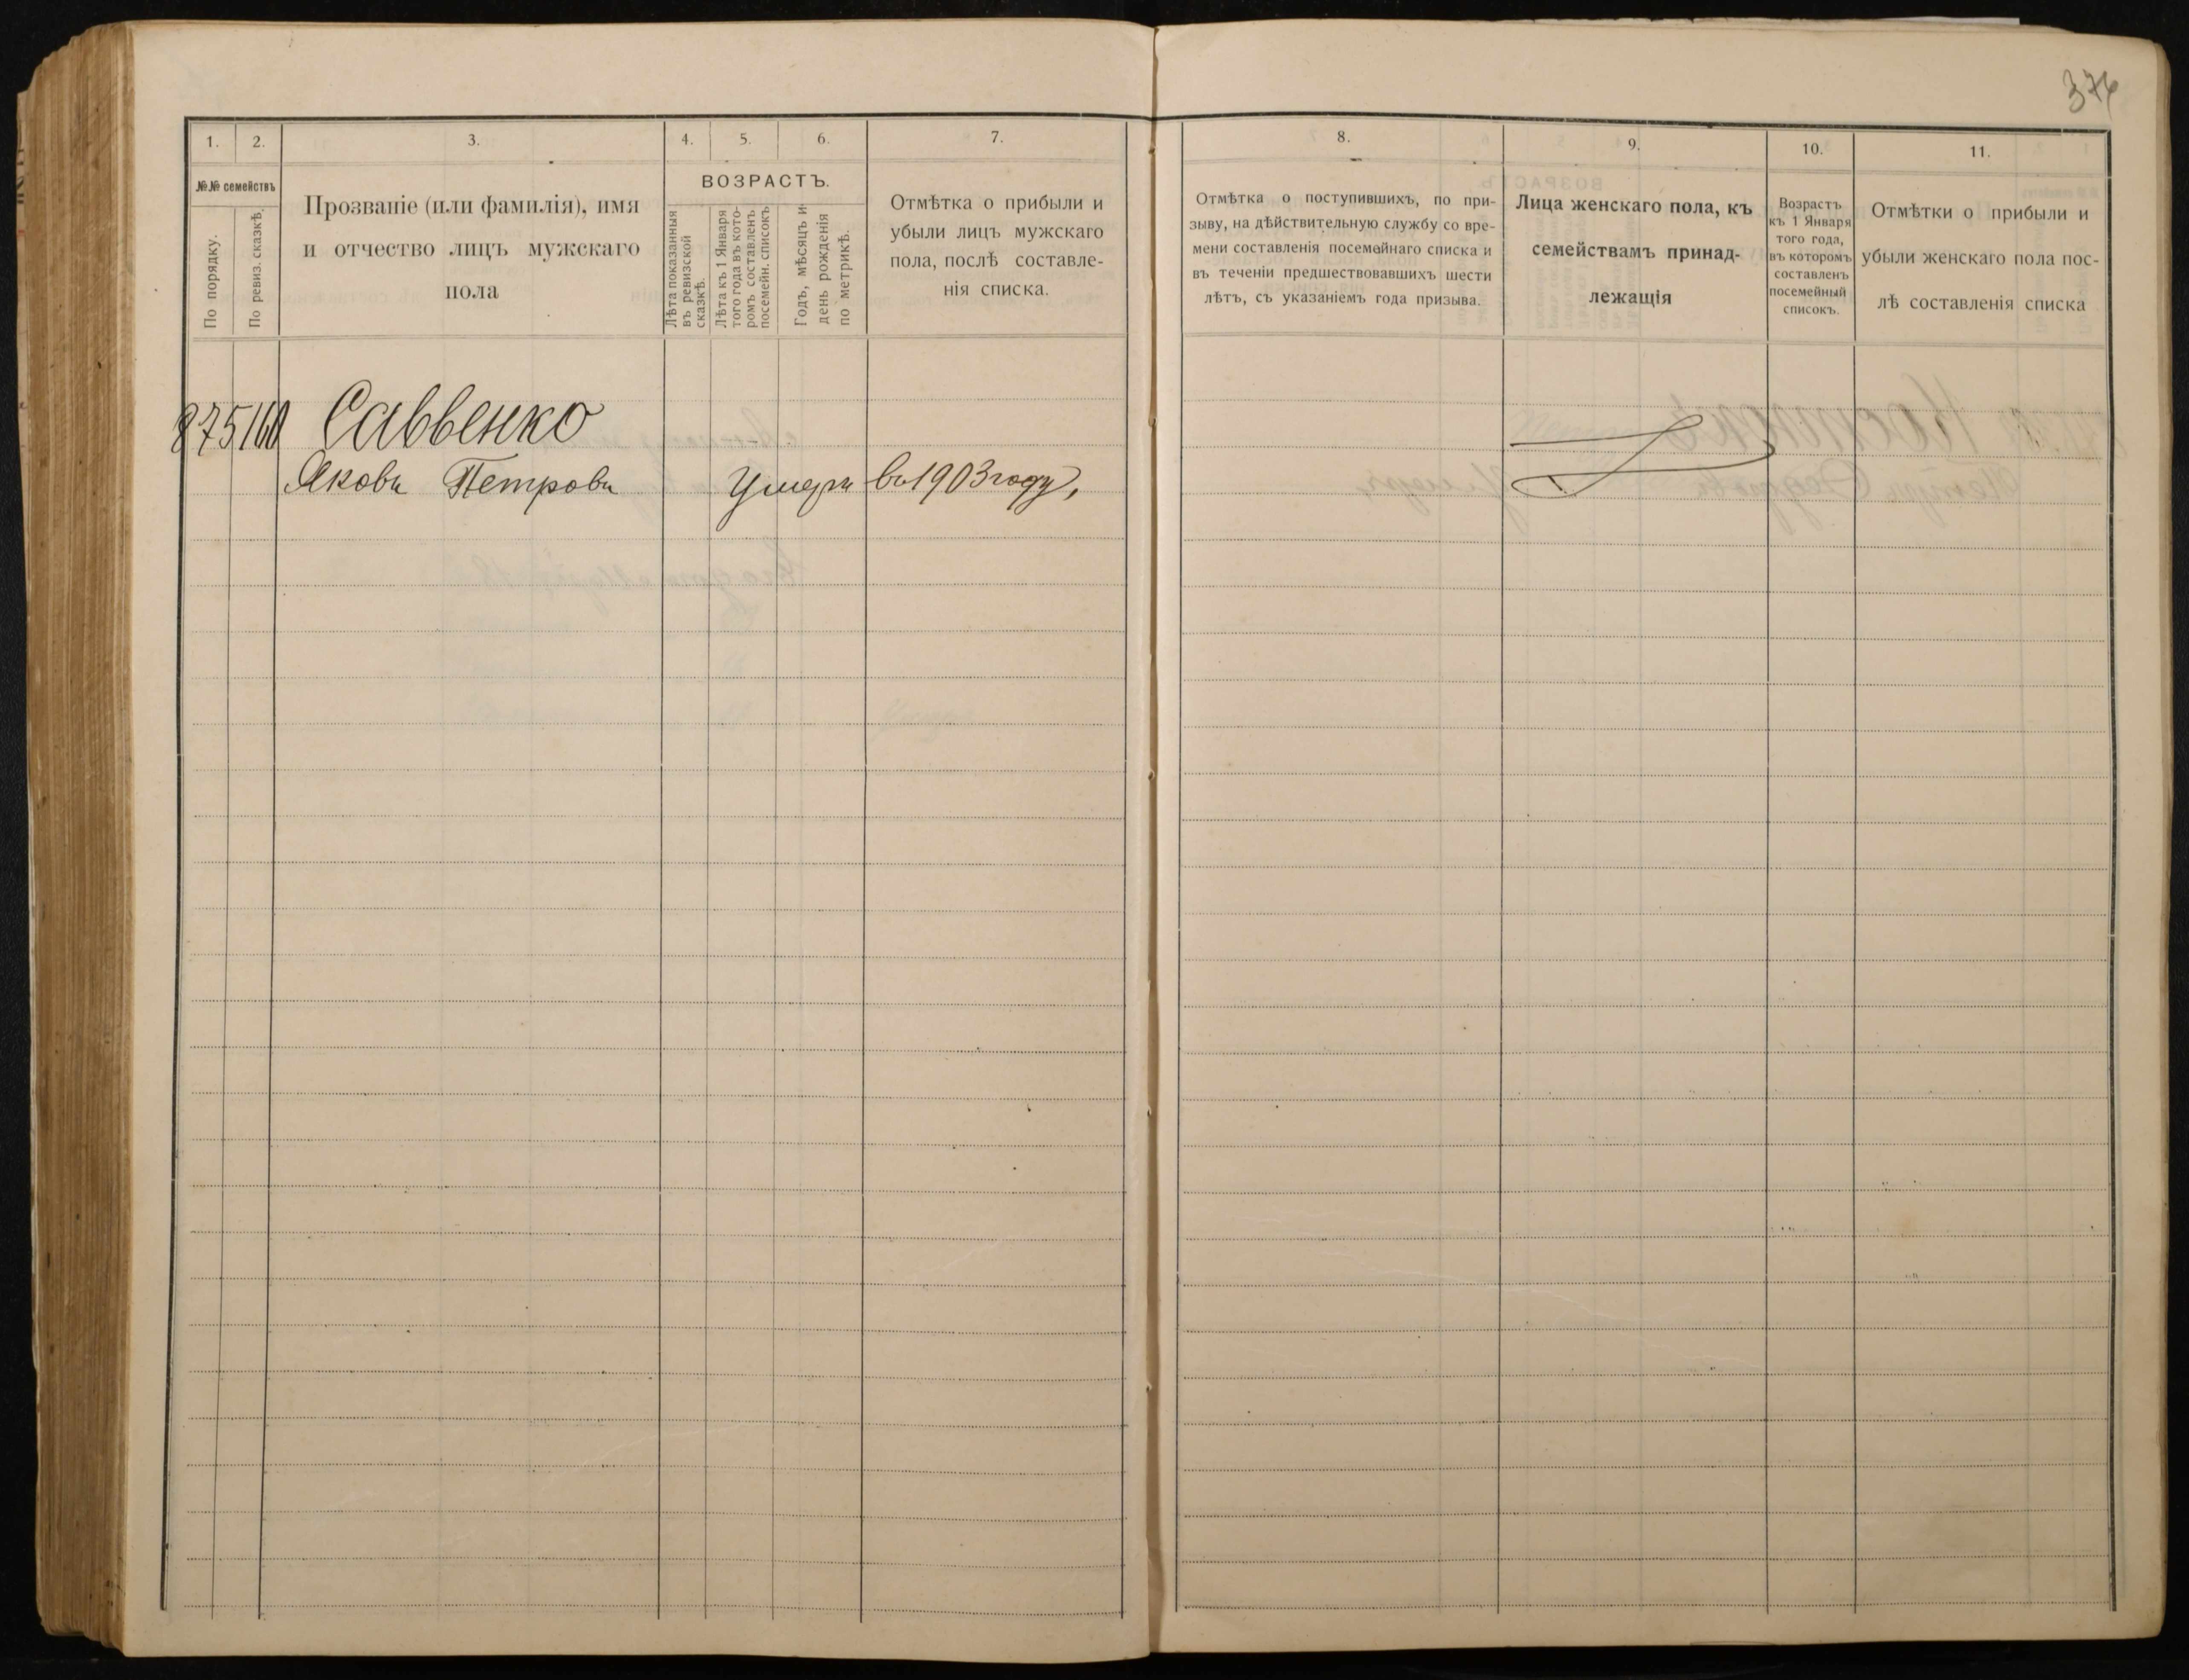 376
1.
2.
3.
4.
5.
6.
7.
№№ семействъ
По порядку.
По ревиз. сказкѣ.
Прозваніе (или фамилія), имя
и отчество лицъ мужскаго
пола
ВОЗРАСТЪ.
Лѣта показанныя
въ ревизской
сказкѣ.
Лѣта къ 1 Января
того года въ кото-
ромъ составленъ
посемейн. списокъ
Годъ, мѣсяцъ и
день рожденія
по метрикѣ.
Отмѣтка о прибыли и
убыли лицъ мужскаго
пола, послѣ составле-
нія списка.
875 160 Саввенко
Яковъ Петровъ Умеръ въ 1903 году,
8.
9.
10.
11.
Отмѣтка о поступившихъ, по при-
зыву, на дѣйствительную службу со вре-
мени составленія посемейнаго списка и
въ теченіи предшествовавшихъ шести
лѣтъ, съ указаніемъ года призыва.
Лица женскаго пола, къ
семействамъ принад-
лежащія
Возрастъ
къ 1 Января
того года,
въ которомъ
составленъ
посемейный
списокъ.
Отмѣтки о прибыли и
убыли женскаго пола пос-
лѣ составленія списка